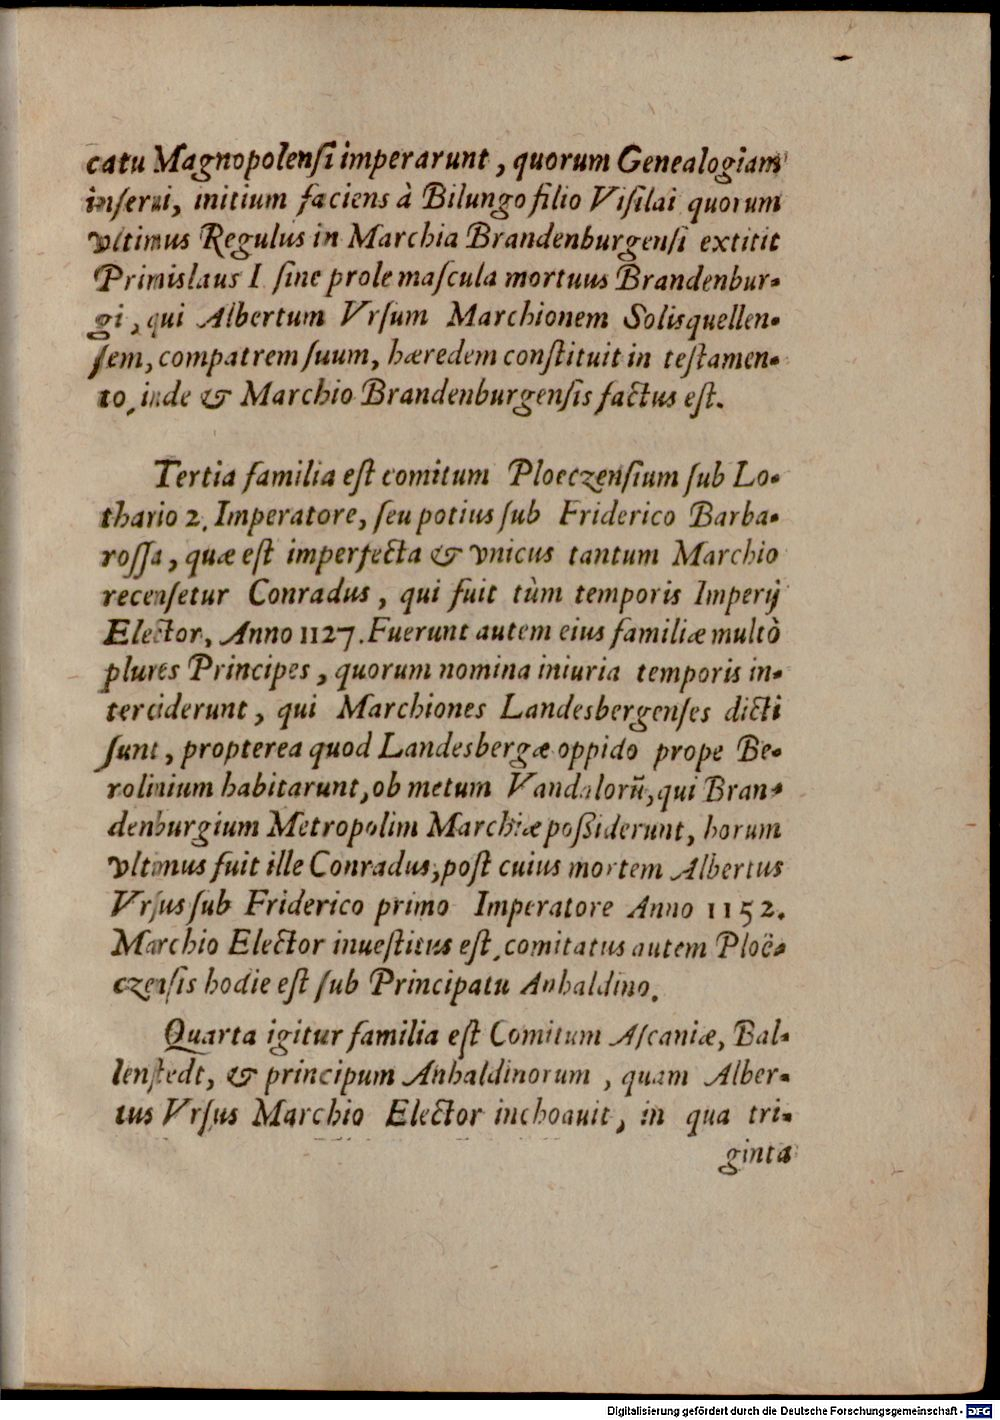 catu Magnopolenſi imperarunt, quorum Genealogiam
inſerui, initium faciens à Bilungo filio Viſilai quorum
vltimus Regulus in Marchia Brandenburgenſi extitit
Primislaus I ſine prole maſcula mortuus Brandenbur-
gi, qui Albertum Vrſum Marchionem Solisquellen-
ſem, compatrem ſuum, hæredem conſtituit in teſtamen-
to, inde & Marchio Brandenburgenſis factus eſt.
Tertia familia eſt comitum Ploeczenſium ſub Lo-
thario 2. Imperatore, ſeu potius ſub Friderico Barba-
roſſa, quæ eſt imperfecta & vnicus tantum Marchio
recenſetur Conradus, qui fuit tùm temporis Imperij
Elector, Anno 1127. Fuerunt autem eius familiæ multò
plures Principes, quorum nomina iniuria temporis in-
terciderunt, qui Marchiones Landesbergenſes dicti
ſunt, propterea quod Landesbergæ oppido prope Be-
rolinium habitarunt, ob metum Vandalorũ, qui Bran-
denburgium Metropolim Marchiæ poßiderunt, horum
vltimus fuit ille Conradus, poſt cuius mortem Albertus
Vrſus ſub Friderico primo Imperatore Anno 1152.
Marchio Elector inueſtitus eſt, comitatus autem Ploë-
czenſis hodie eſt ſub Principatu Anhaldino.
Quarta igitur familia eſt Comitum Aſcaniæ, Bal-
lenſtedt, & principum Anhaldinorum, quam Alber-
tus Vrſus Marchio Elector inchoauit, in qua tri-
ginta
Digitalisierung gefördert durch die Deutsche Forschungsgemeinschaft - DFG